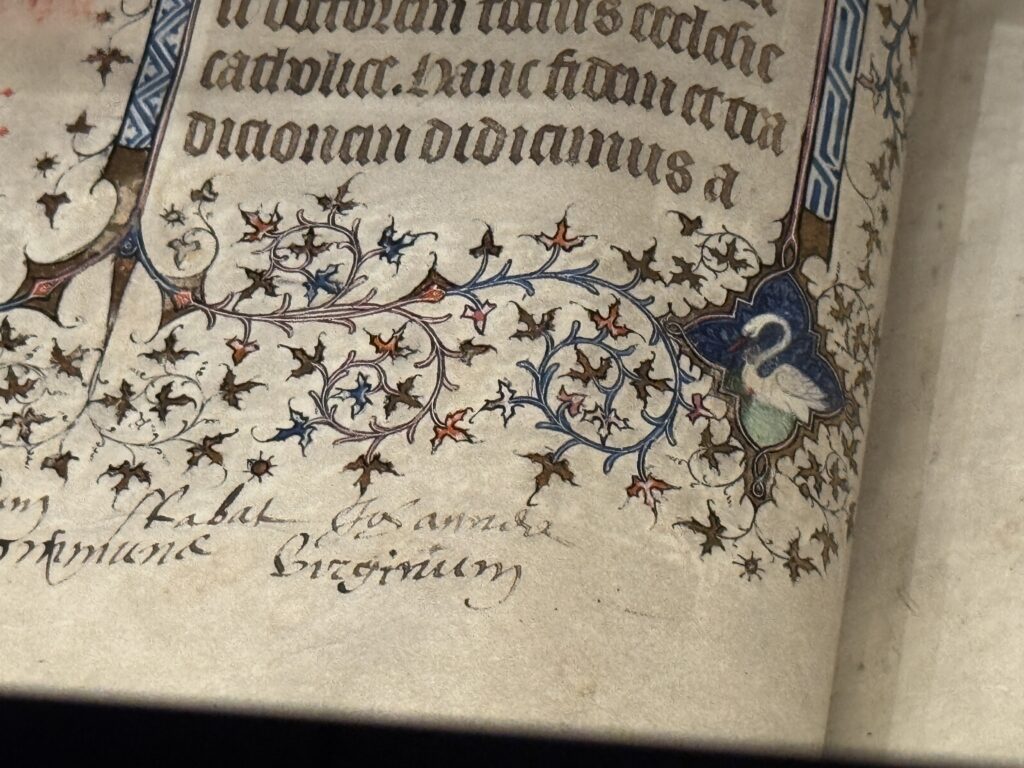 doctorem totius ecclesie
catholice. Hanc fidem et tra
dicionem didicimus a
stabat
Virginum